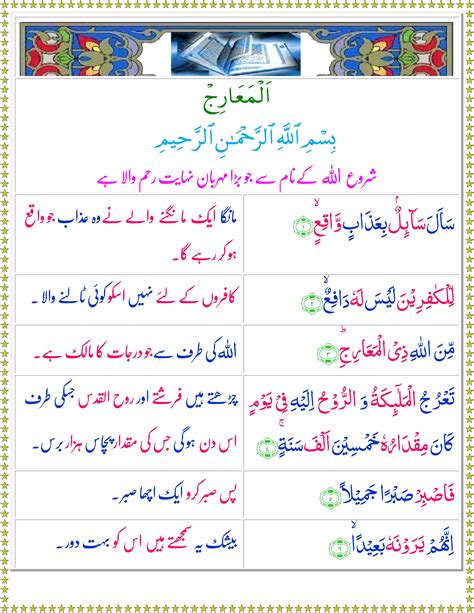 اَلْمَعَارِجْ
بِسْمِ اللّٰهِ الرَّحْمٰنِ الرَّحِيْمِ
شروع اللہ کے نام سے جو بڑا مہربان نہایت رحم والا ہے
سَاَلَ سَآئِلٌۢ بِعَذَابٍ وَّاقِعٍۙ ﴿۱﴾
مانگا ایک مانگنے والے نے وہ عذاب جو واقع
ہو کر رہے گا۔
لِّلْكٰفِرِيْنَ لَيْسَ لَهٗ دَافِعٌۙ ﴿۲﴾
کافروں کے لئے نہیں اسکو کوئی ٹالنے والا ۔
مِّنَ اللّٰهِ ذِى الْمَعَارِجِؕ ﴿۳﴾
اللہ کی طرف سے جو درجات کا مالک ہے۔
تَعْرُجُ الْمَلٰٓئِكَةُ وَ الرُّوْحُ اِلَيْهِ فِىْ يَوْمٍ
كَانَ مِقْدَارُهٗ خَمْسِيْنَ اَلْفَ سَنَةٍۚ ﴿۴﴾
چڑھتے ہیں فرشتے اور روح القدس جسکی طرف
اس دن ہوگی جس کی مقدار پچاس ہزار برس۔
فَاصْبِرْ صَبْرًا جَمِيْلًا ﴿۵﴾
پس صبر کرو ایک اچھا صبر۔
اِنَّهُمْ يَرَوْنَهٗ بَعِيْدًاۙ ﴿۶﴾
بیشک یہ سمجھتے ہیں اس کو بہت دور۔